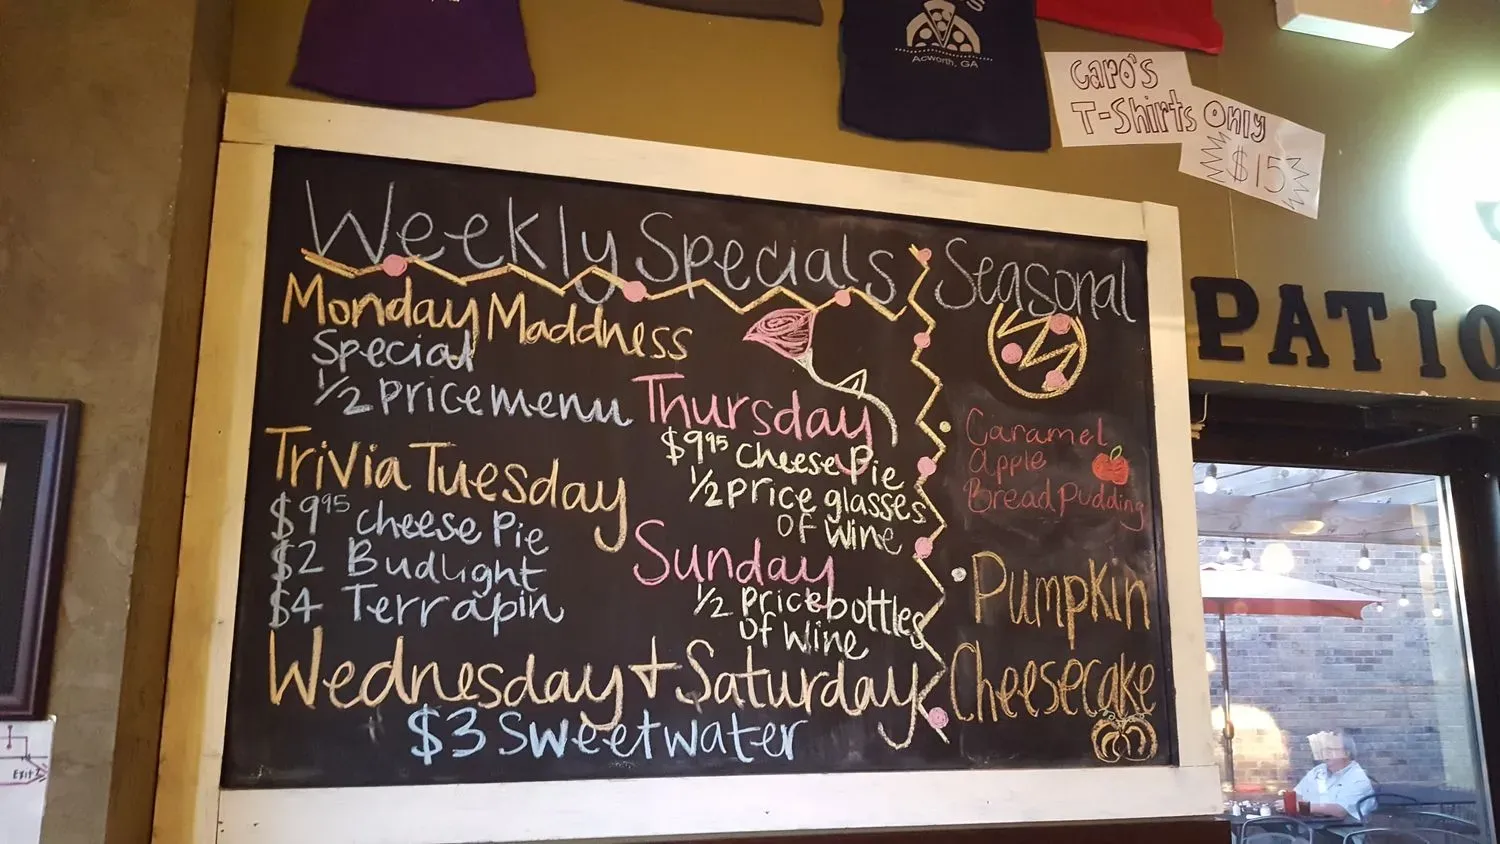 Acworth, GA
Capo's
T-Shirts Only
$15
PATIO
Weekly Specials
Monday Maddness
Special
1/2 price menu
Trivia Tuesday
$9.95 cheese Pie
$2 Budlight
$4 Terrapin
Thursday
$9.95 cheese Pie
1/2 price glasses
of wine
Sunday
1/2 price bottles
of wine
Wednesday + Saturday
$3 Sweetwater
Seasonal
Caramel
apple
Bread pudding
Pumpkin
Cheesecake
Exit